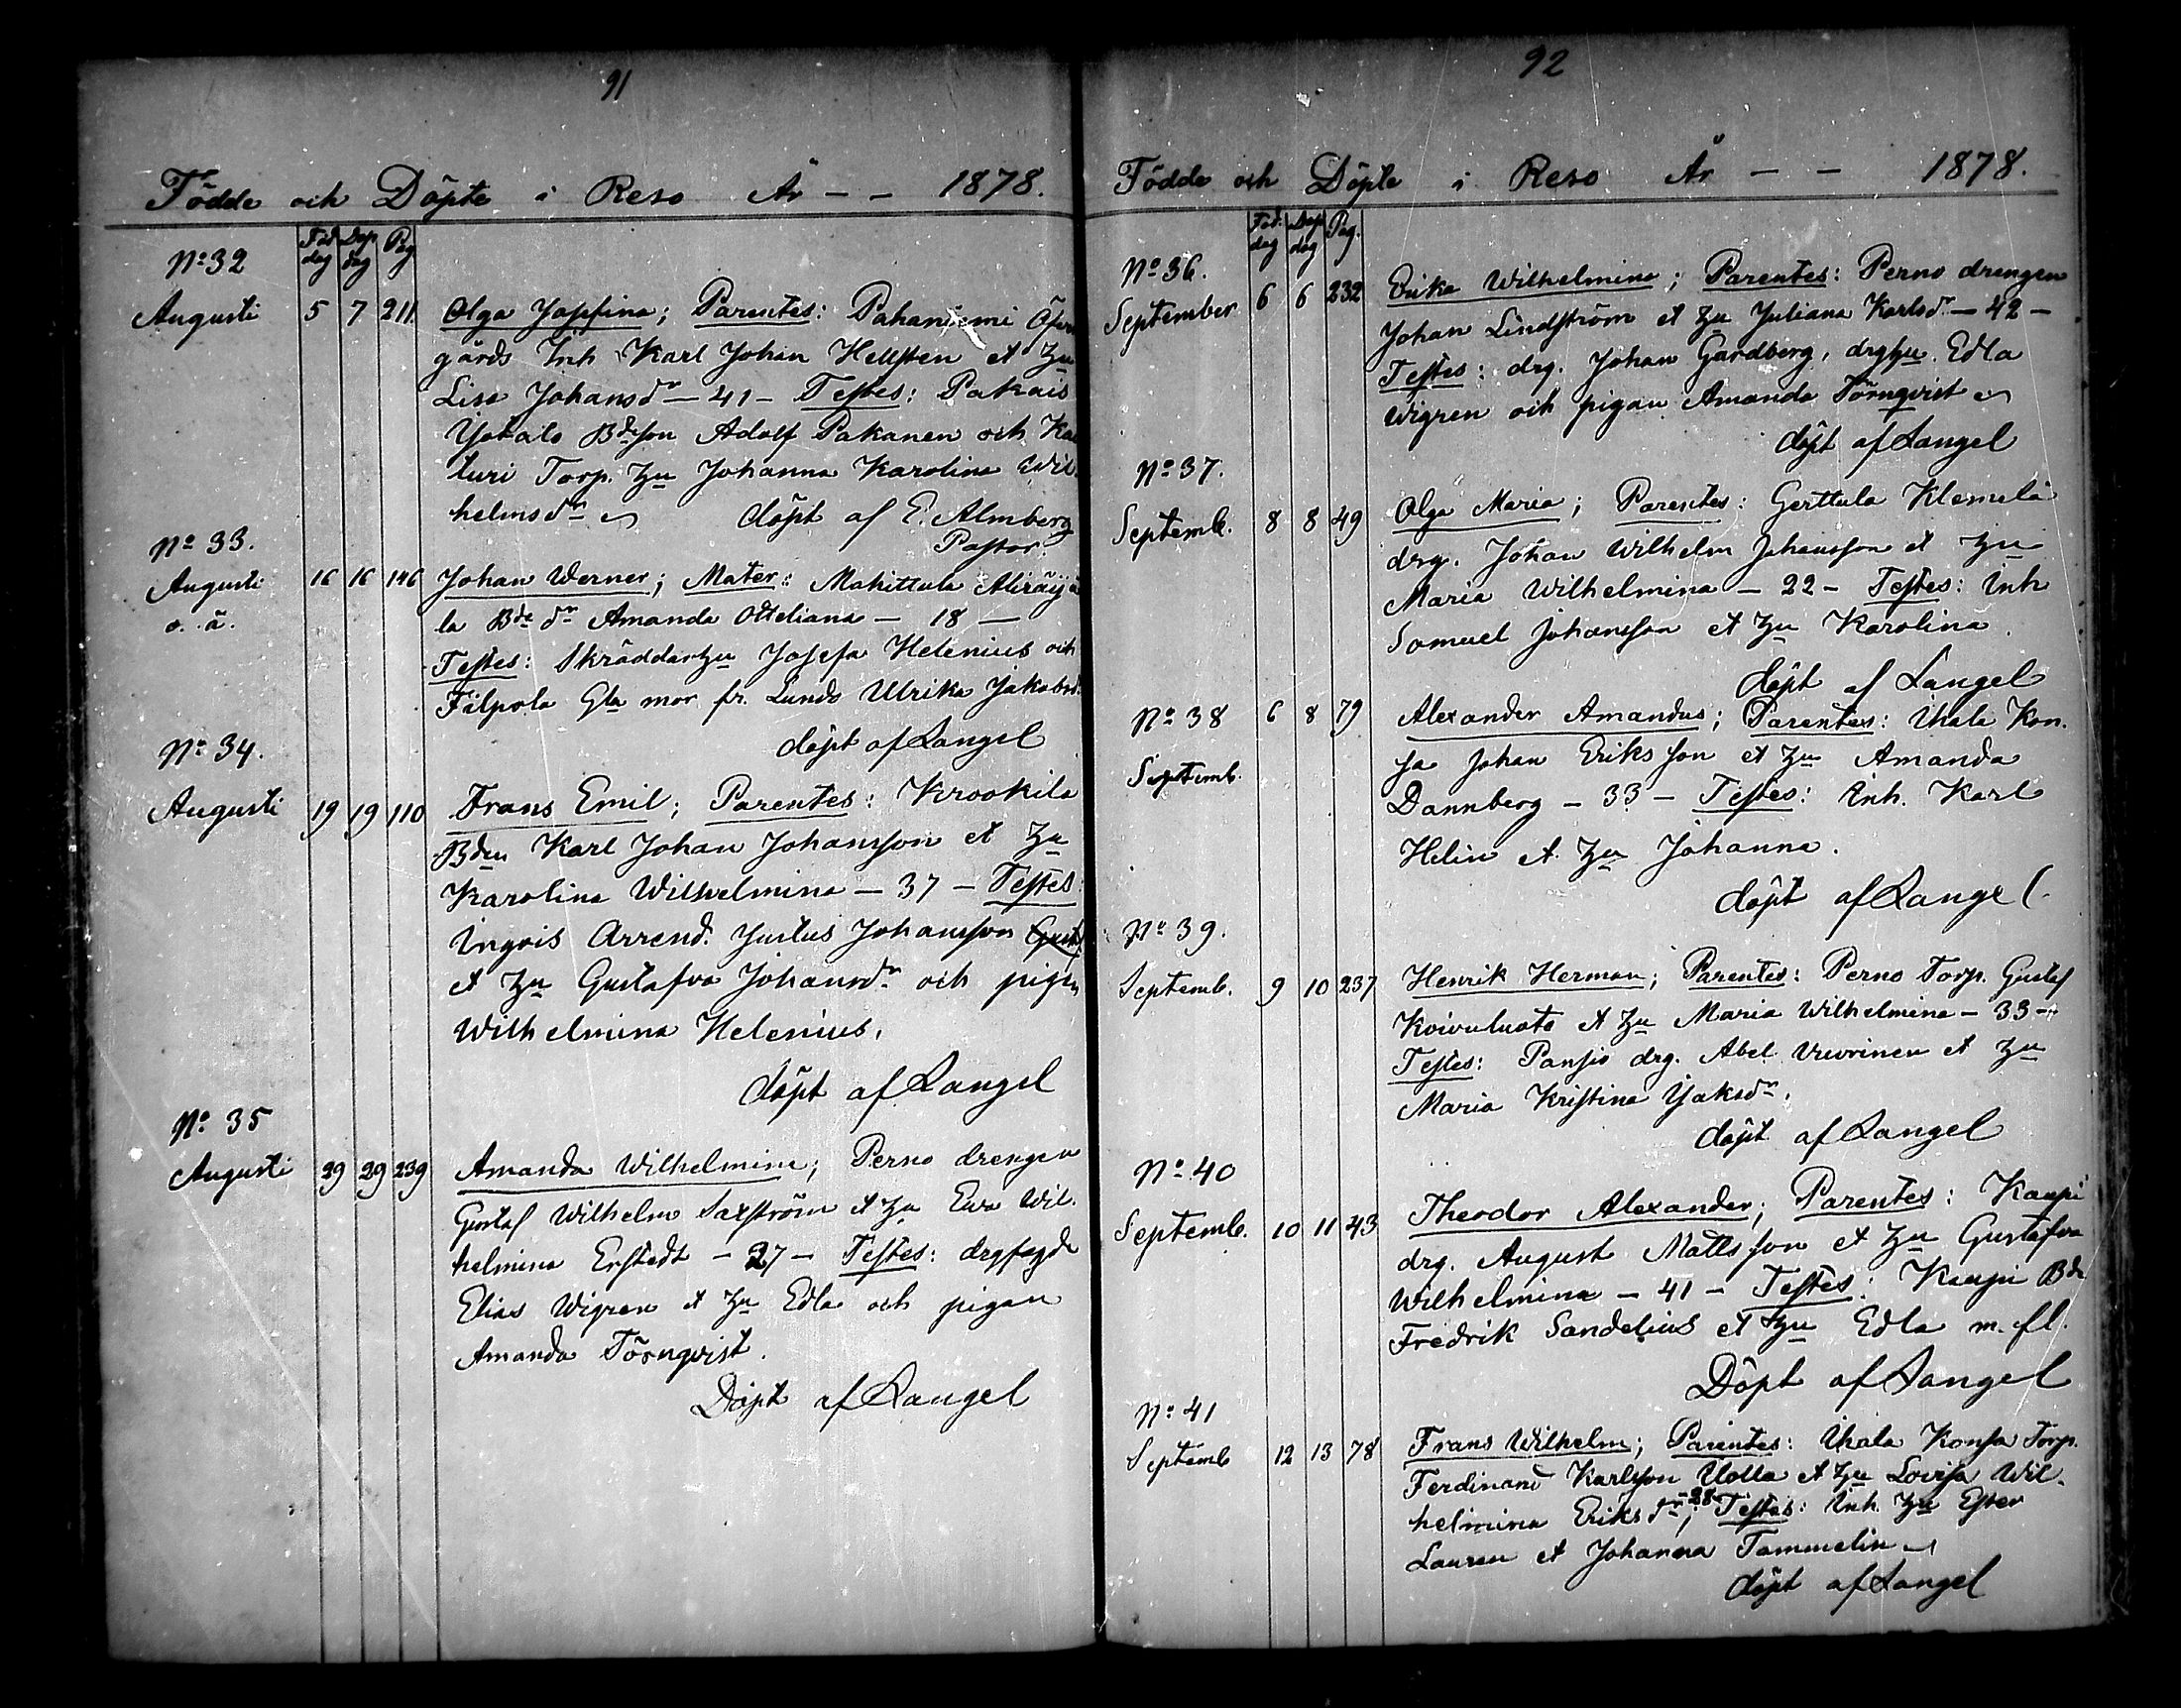 91
Födde och Döpte i Reso År - - 1878.
Föd. dag Dop dag Pag
No 32
Augusti 5 7 211 Olga Josefina; Parentes: Pahaniemi Öfver
gårds Inh Karl Johan Hellsten et Hu
Lisa Johansdr - 41 - Testes: Pakais
Yotalo Bdeson Adolf Pakanen och Ka
turi Torp. Hu Johanna Karolina Wil
helmsdr döpt af E. Almberg
Pastor.
No 33.
Augusti 16 16 146 Johan Werner; Mater: Mahittula Aliräijä
o. ä. la Bde dr Amanda Otteliana - 18 -
Testes: Skräddarhu Josefa Helenius och
Filpola Gla mor fr. Lunds Ulrika Jakobsd.
döpt af Langel
No 34.
Augusti 19 19 110 Frans Emil; Parentes: Krookila
Bden Karl Johan Johansson et Hu
Karolina Wilhelmina - 37 - Testes:
Ingois Arrend. Justus Johansson
et Hu Gustafva Johansdr och pigan
Wilhelmina Helenius.
döpt af Langel
No 35
Augusti 29 29 239 Amanda Wilhelmina; Perno drengen
Gustaf Wilhelm Saxström et Hu Eva Wil.
helmina Erstedt - 27 - Testes:
Elias Wigren et Hu Edla och pigan
Amanda Törnqvist.
Döpt af Langel
92
Födde och Döpte i Reso År - - 1878.
Föd. dag Dop dag Pag.
No 36.
September 6 6 232 Erika Wilhelmina; Parentes: Perno drengen
Johan Lindström et Hu Juliana Karlsdr - 42 -
Testes: drg. Johan Gardberg, drghu. Edla
Wigren och pigan Amanda Törnqvist
döpt af Langel
No 37.
Septemb. 8 8 49 Olga Maria; Parentes: Gerttula Klemelä
drg. Johan Wilhelm Johansson et Hu
Maria Wilhelmina - 22 - Testes: Inh
Samuel Johansson et Hu Karolina.
döpt af Langel
No 38 6 8 79 Alexander Amandus; Parentes: Ihala Kon.
Septemb. sa Johan Eriksson et Hu Amanda
Dannberg - 33 - Testes: Inh. Karl
Helin et Hu Johanna.
döpt af Langel.
No 39.
Septemb. 9 10 237 Henrik Herman; Parentes: Perno Torp. Gustaf
Koivuluoto et Hu Maria Wilhelmina - 33 -
Testes: Pansio drg. Abel Vuorinen et Hu
Maria Kristina Jaksdr.
döpt af Langel
No 40
Septemb. 10 11 43 Theodor Alexander; Parentes: Kaupi
drg. August Mattsson et Hu Gustafva
Wilhelmina - 41 - Testes: Kaupi Bde
Fredrik Sandelius et Hu Edla m. fl.
Döpt af Langel
No 41
Septemb 12 13 78 Frans Wilhelm; Parentes: Ihala Konsa Torp.
Ferdinand Karlsson Uolla et Hu Lovisa Wil.
helmina Eriksdr - 28 -; Testes: Inh. Hu Ester
Lauren et Johanna Tammelin
döpt af Langel